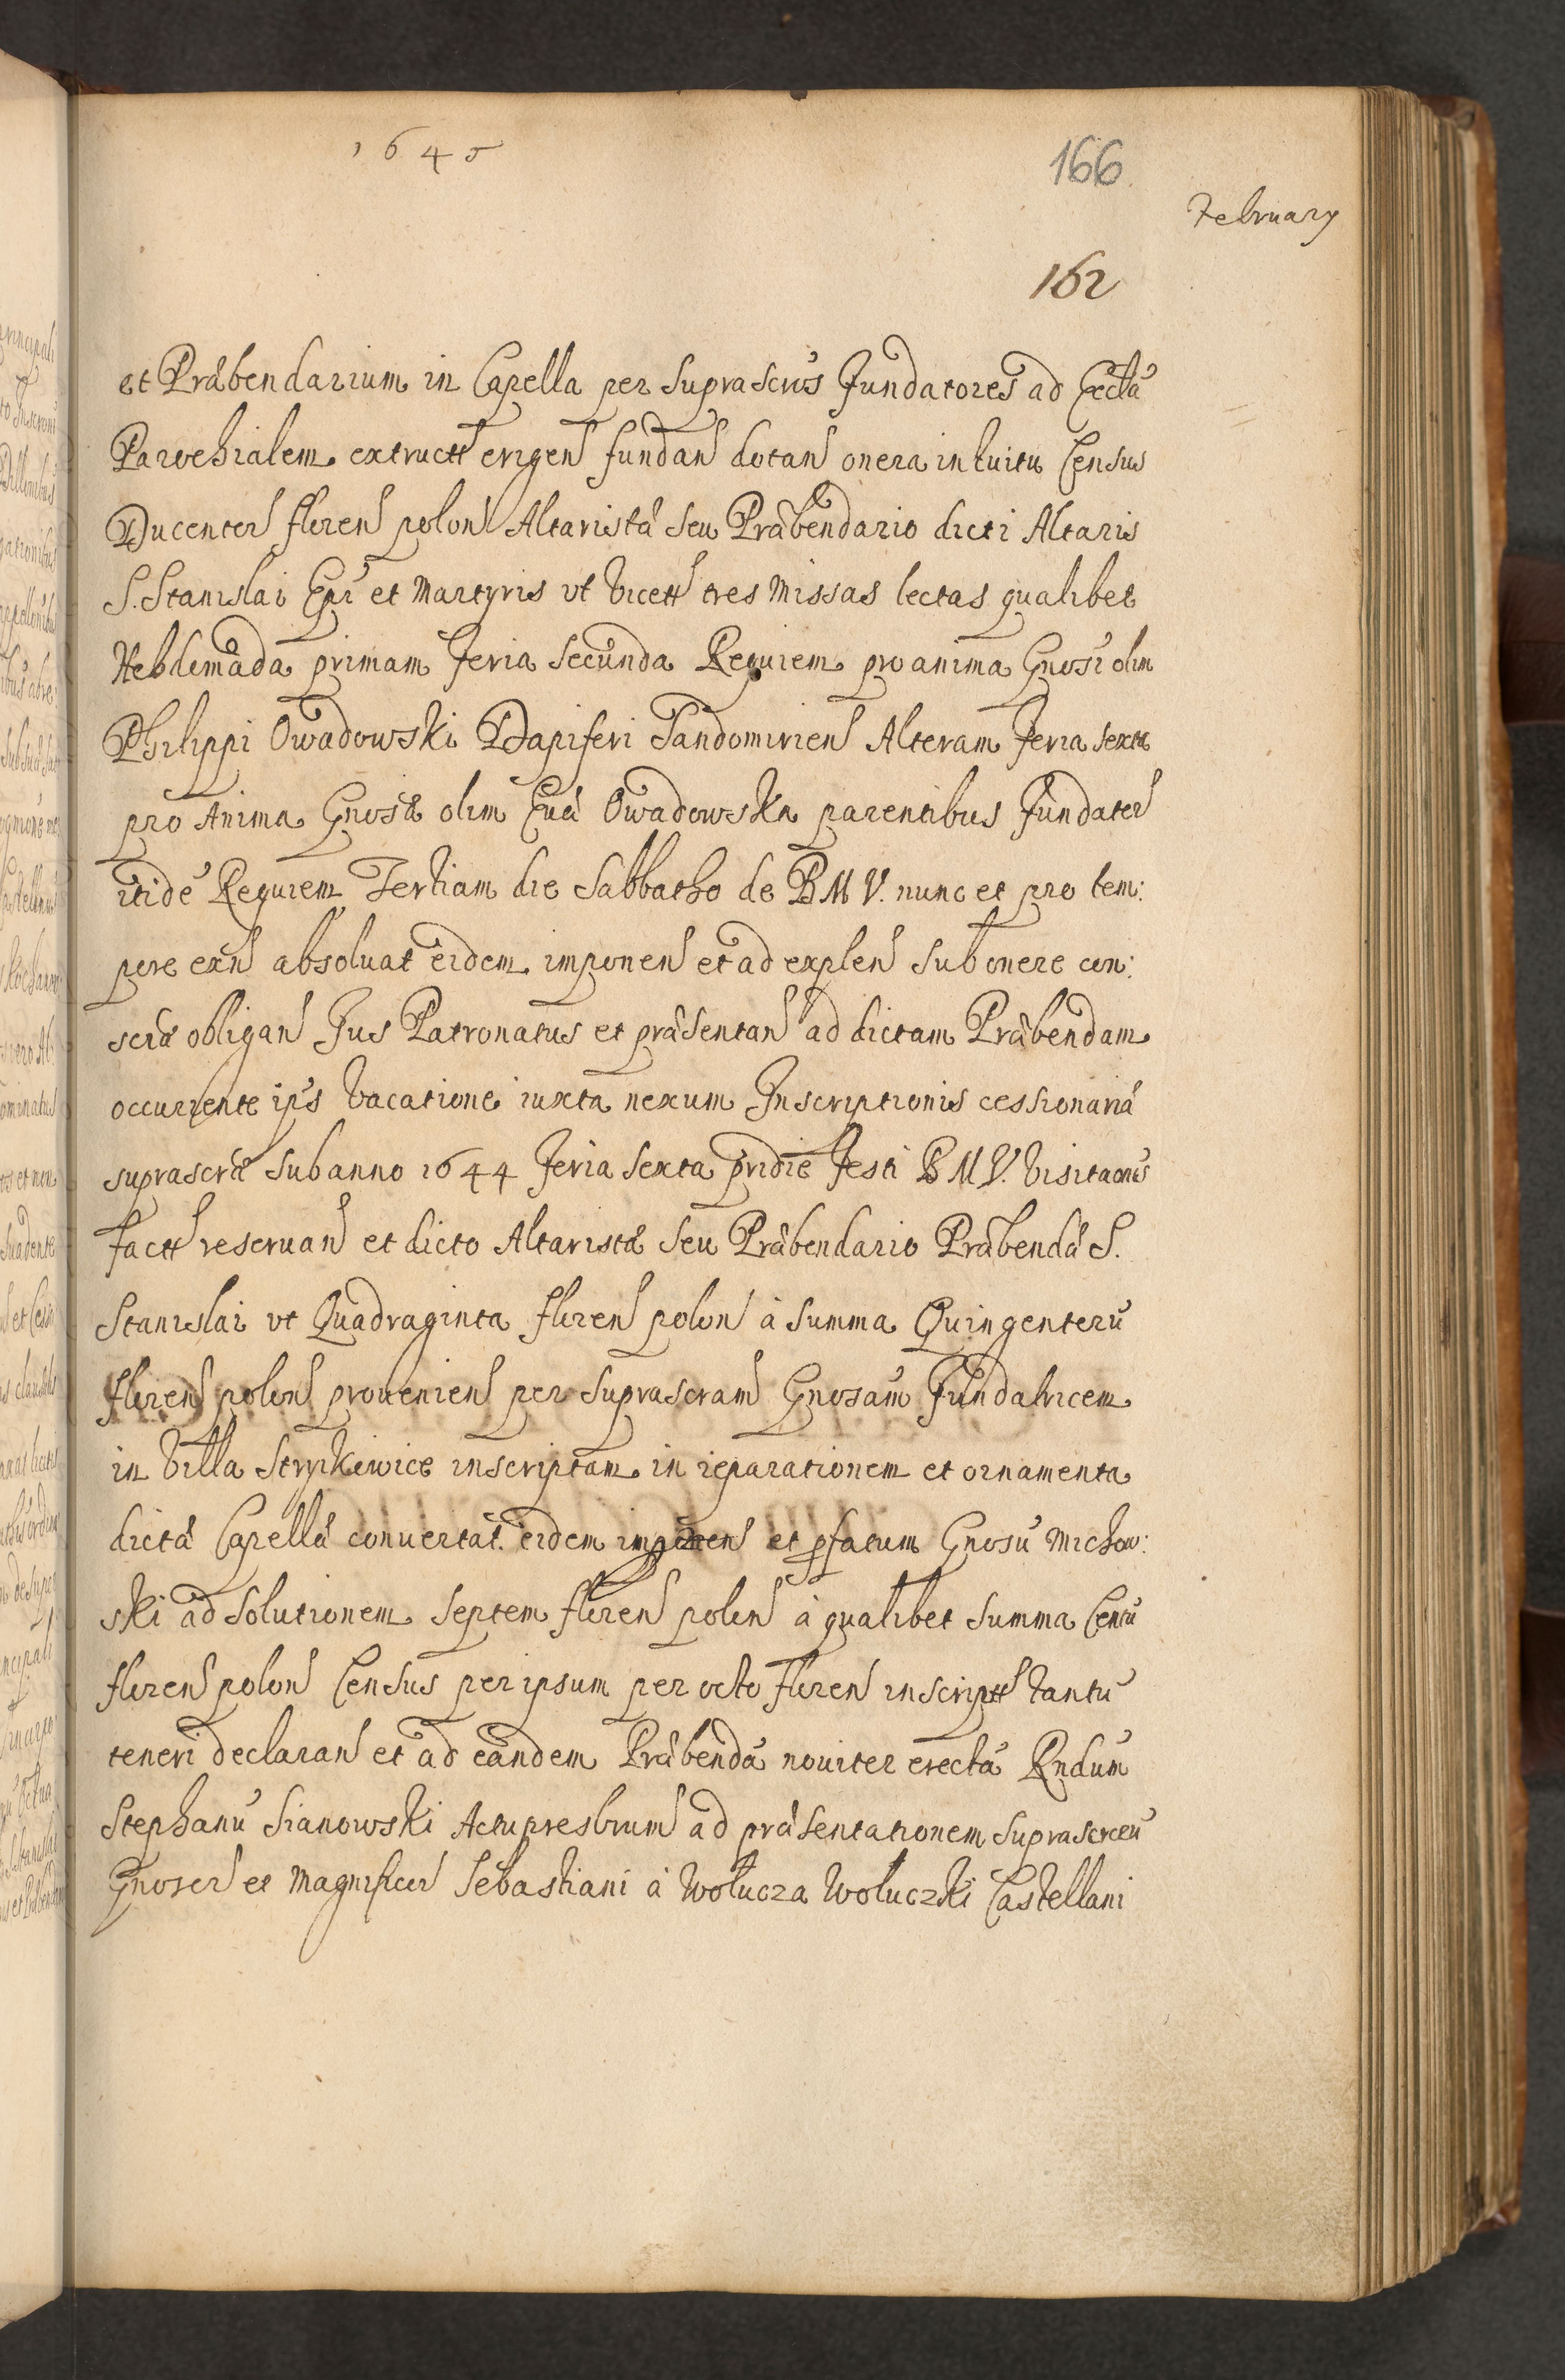 1645
166
February
162
et Præbendarium in Capella per suprascrős Fundatores ad Eccła
Parochialem extructt erigen fundan dotan onera intuitu Census
Ducentor floren polon Altaristæ seu Præbendario dicti Altaris
S. Stanislai Epi et Martyris vt vicett tres Missas lectas qualibet
Hebdomada primam Feria secunda Requiem pro anima Gnosi olim
Philippi Owadowski Dapiferi Sandomirien Alteram Feria sexta
pro Anima Gnosæ olim Euæ Owadowska parentibus Fundator
itidé Requiem Tertiam die Sabbatho de B M V. nunc et pro tem:
pore exn absoluat eidem imponen et ad explen sub onere con:
sciæ obligan Jus Patronatus et præsentan ad dictam Præbendam
occurrente ips vacatione iuxta nexum Inscriptionis cessionariæ
suprascræ sub anno 1644 Feria sexta pridie Festi B M V. Visitaonis
factt reseruan et dicto Altaristæ seu Præbendario Præbendæ S.
Stanislai vt Quadraginta floren polon à summa Quingentorū
floren polon prouenien per suprascram Gnosam Fundatricem
in Villa Strykowice inscriptam in reparationem et ornamenta
dictæ Capellæ conuertat eidem imponen et pfatum Gnosū Michow:
ski ad solutionem septem floren polon à qualibet summa Centū
floren polon Census per ipsum per octo floren inscriptt tantū
teneri declaran et ad eandem Præbendā nouiter erectā Rndum
Stephanū Sianowski Actupresbrum ad præsentationem suprascrrū
Gnosor et Magnificor Sebastiani à Wołucza Wołuczki Castellani